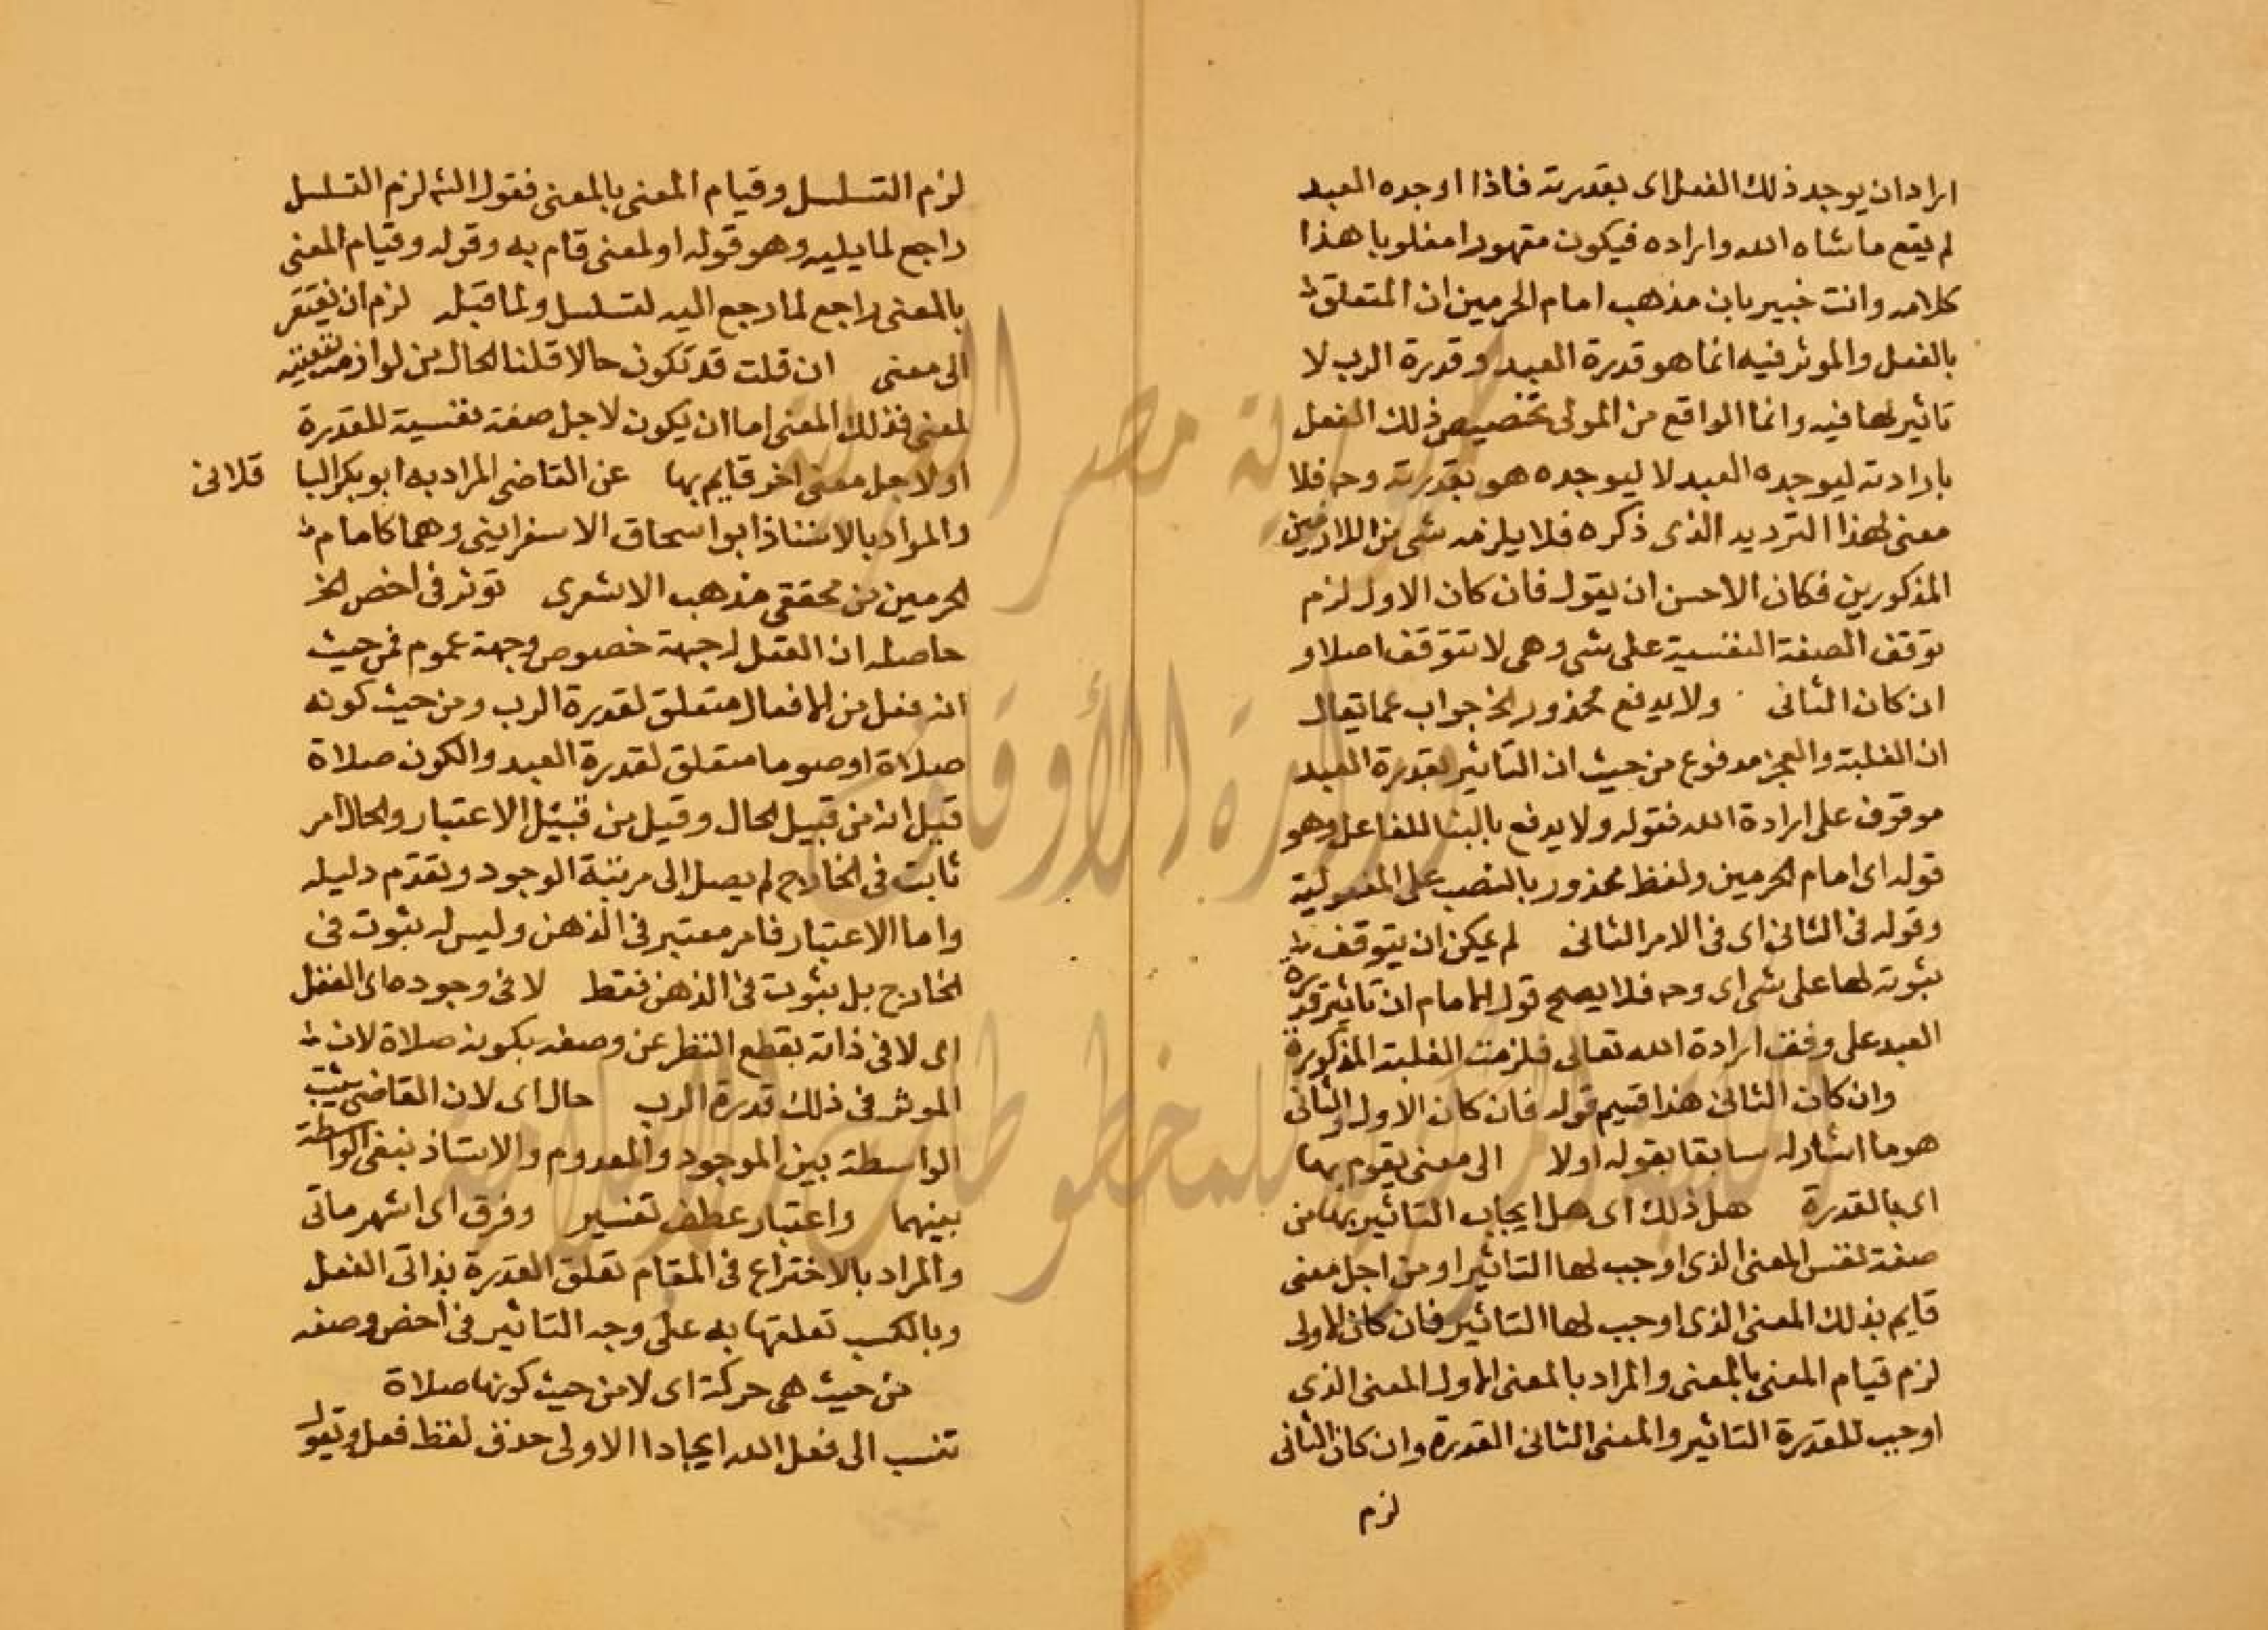 اراد ان يوجد ذلك الفعل اى بقدرته فاذا اوجده العبد
لم يقع ما شاه الله واراده فيكون مقهورا مغلوبا هذا
كلامه وانت خبير بان مذهب امام الحرمين ان المتعلق
بالفعل والموثر فيه انما هو قدرة العبد وقدرة الرب لا
تاثير لها فيه وانما الواقع من المولى تخصيص ذلك الفعل
بارادته ليوجده العبد لا ليوجده هو بقدرته وح فلا
معنى لهذا الترديد الذى ذكره فلا يلزمه شى من اللازمين
المذكورين فكان الاحسن ان يقول فان كان الاول لزم
توقف الصفة النفسية على شى وهى لا تتوقف اصلا و
ان كان الثانى ولا يدفع محذور الخ جواب عما يقال
ان الغلبة والعجز مدفوع من حيث ان التاثير بقدرة العبد
موقوف على ارادة الله فقوله ولا يدفع بالبنا للفاعل وهو
قوله اى امام الحرمين ولفظ محذور بالنصب على المفعولية
وقوله فى الثانى اى فى الامر الثانى لم يمكن ان يتوقف
ثبوته لها على شى اى وح فلا يصح قول الامام ان تاثير قدرة
العبد على وفق ارادة الله تعالى فلزمت الغلبة المذكورة
وان كان الثانى هذا قسيم قوله فان كان الاول والثانى
هو ما اشار له سابقا بقوله اولا الى معنى يقوم بها
اى بالقدرة هل ذلك اى هل ايجاب التاثير بها من
صفة لنفس المعنى الذى اوجب لها التاثير او من اجل معنى
قايم بذلك المعنى الذى اوجب لها التاثير فان كان الاولى
لزم قيام المعنى بالمعنى والمراد بالمعنى الاول المعنى الذى
اوجب للقدرة التاثير والمعنى الثانى القدرة وان كان الثانى
لزم
لزم التسلسل وقيام المعنى بالمعنى فقول الشه لزم التسلسل
راجع لما يليه وهو قوله او لمعنى قام به وقوله وقيام المعنى
بالمعنى راجع لما رجع اليه لتسلسل ولما قبله لزم ان يفتقر
الى معنى ان قلت قد تكون حالا قلنا الحال من لوازمه
لمعنى فذلك المعنى اما ان يكون لاجل صفة نفسية للقدرة
او لاجل معنى اخر قايم بها عن القاضى المراد به ابو بكر البا قلانى
والمراد بالاستاذ ابو اسحاق الاسفراينى وهما كامام
الحرمين من محققى مذهب الاشعرى توثر فى اخص الخ
حاصله ان الفعل له جهة خصوص وجهة عموم فمن حيث
انه فعل من الافعال متعلق لقدرة الرب ومن حيث كونه
صلاة او صوما متعلق لقدرة العبد والكون صلاة
قيل انه من قبيل الحال وقيل من قبيل الاعتبار والحال امر
ثابت فى الخارج لم يصل الى مرتبة الوجود وتقدم دليله
واما الاعتبار فامر معتبر فى الذهن وليس له ثبوت فى
الخارج بل ثبوت فى الذهن فقط لا فى وجوده اى الفعل
اى لا فى ذاته بقطع النظر عن وصفه بكونه صلاة لان
الموثر فى ذلك قدرة الرب حال اى لان القاضى يثبت
الواسطة بين الموجود والمعدوم والاستاذ ينفى الواسطة
بينهما واعتبار عطف تفسير وفرق اى اشهر ماتى
والمراد بالاختراع فى المقام تعلق القدرة بذاتى الفعل
وبالكسب تعلقها به على وجه التاثير فى اخص وصفه
من حيث هى حركة اى لا من حيث كونها صلاة
تنسب الى فعل الله ايجادا الاولى حذف لفظ فعل ويقول
جمهورية مصر العربية
وزارة الأوقاف
المكتبة المركزية للمخطوطات الإسلامية